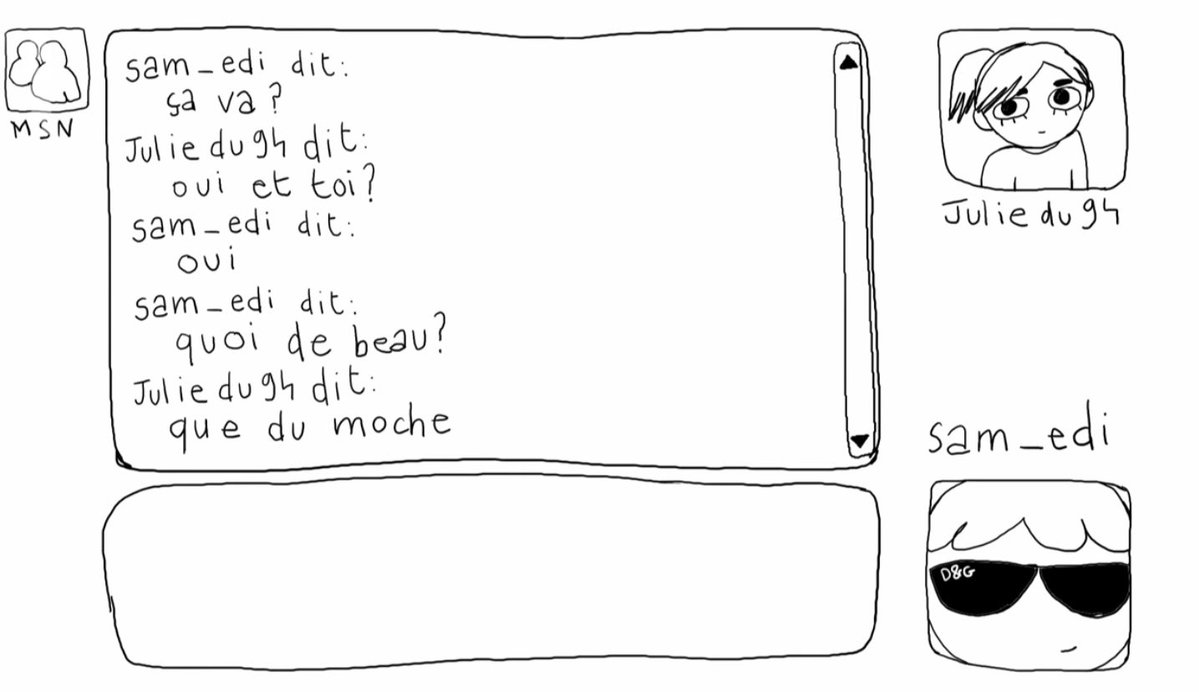 MSN
sam_edi dit:
ça va ?
Julie du 94 dit:
oui et toi ?
sam_edi dit:
oui
sam_edi dit:
quoi de beau ?
Julie du 94 dit:
que du moche
Julie du 94
sam_edi
D&G